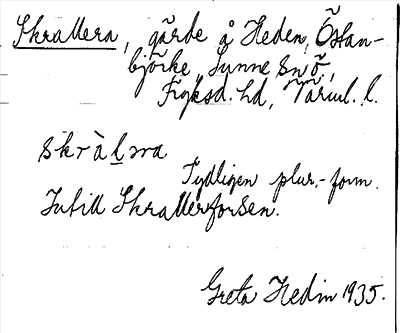 Skrallera, gärde å Heden, Östan-
björke, Sunne sn,
Fryksd. hd, Värml. l.
skràl̲ɔra
Tydligen plur.-form.
Intill Skrallerforsen.
Greta Hedin 1935.